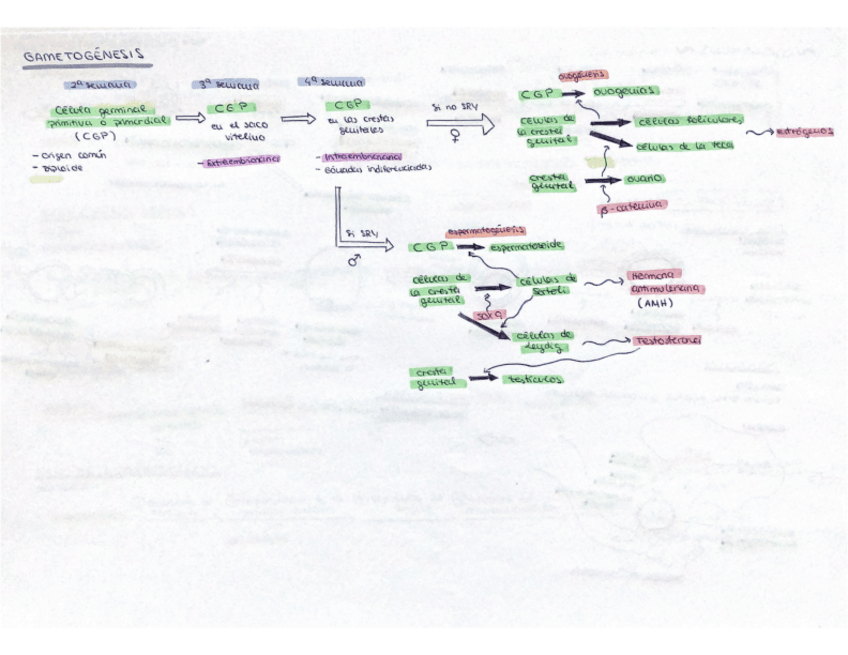 GAMETOGÉNESIS
2ª semana
3ª semana
4ª semana
Célula germinal
primitiva o primordial
(CGP)
- origen común
- diploide
CGP
en el saco
vitelino
- Extraembrionario
CGP
en las crestas
genitales
- Intraembrionario
- Gónadas indiferenciadas
Si no SRY
♀
ovogénesis
CGP
ovogonias
células de
la cresta
genital
células foliculares
células de la teca
estrógenos
cresta
genital
ovario
β-catenina
Si SRY
♂
espermatogénesis
CGP
espermatozoide
células de
la cresta
genital
células de
Sertoli
Hormona
antimulleriana
(AMH)
SOX9
células de
Leydig
Testosterona
cresta
genital
testículos